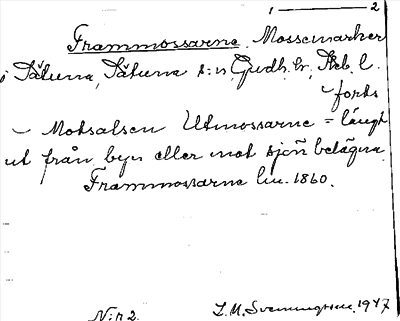 1 ——— 2
Frammossarne. Mossemarker
i Sätuna, Sätuna s:n, Gudh. hr, Skb. l.
~ forts
~ Motsatsen Utmossarne = långt
ut från byn eller mot sjön belägna.
Frammossarne lm. 1860.
N:r 2. L. M. Svenungsson. 1947